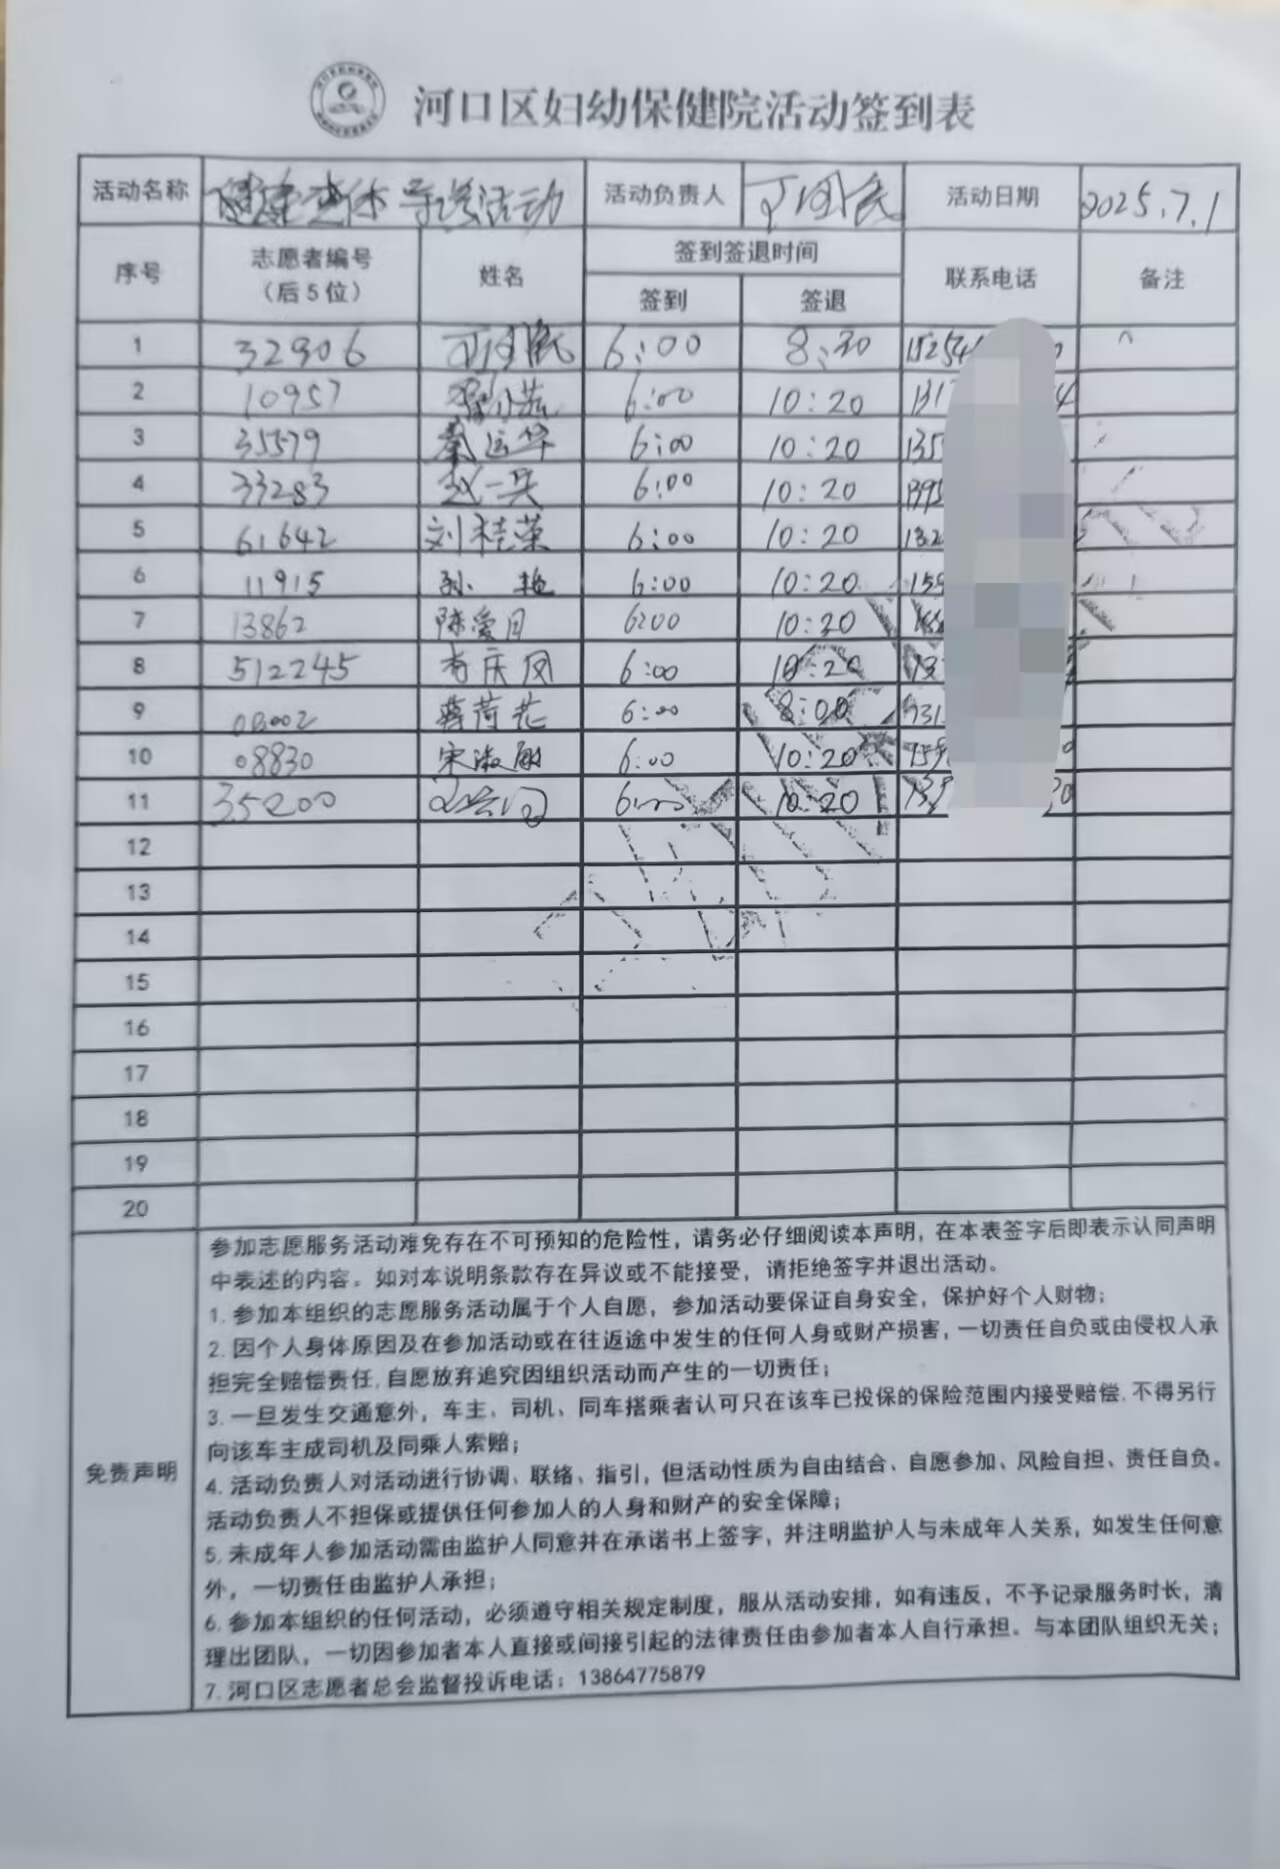 河口区妇幼保健院活动签到表
活动名称 健康查体导送活动 活动负责人 丁国民 活动日期 2025.7.1
序号 志愿者编号（后5位） 姓名 签到签退时间 联系电话 备注
签到 签退
1 32906 丁国民 6:00 8:30
2 10957 6:00 10:20
3 35579 秦运华 6:00 10:20
4 33283 赵一兵 6:00 10:20
5 61642 刘桂荣 6:00 10:20
6 11915 孙艳 6:00 10:20
7 13862 陈爱月 6:00 10:20
8 512245 李庆凤 6:00 10:20
9 蔡荷花 6:00 8:00
10 08830 宋淑敏 6:00 10:20
11 35200 6:00 10:20
12
13
14
15
16
17
18
19
20
免责声明
参加志愿服务活动难免存在不可预知的危险性，请务必仔细阅读本声明，在本表签字后即表示认同声明
中表述的内容。如对本说明条款存在异议或不能接受，请拒绝签字并退出活动。
1. 参加本组织的志愿服务活动属于个人自愿，参加活动要保证自身安全，保护好个人财物；
2. 因个人身体原因及在参加活动或在往返途中发生的任何人身或财产损害，一切责任自负或由侵权人承
担完全赔偿责任，自愿放弃追究因组织活动而产生的一切责任；
3. 一旦发生交通意外，车主、司机、同车搭乘者认可只在该车已投保的保险范围内接受赔偿，不得另行
向该车主成司机及同乘人索赔；
4. 活动负责人对活动进行协调、联络、指引，但活动性质为自由结合、自愿参加、风险自担、责任自负。
活动负责人不担保或提供任何参加人的人身和财产的安全保障；
5. 未成年人参加活动需由监护人同意并在承诺书上签字，并注明监护人与未成年人关系，如发生任何意
外，一切责任由监护人承担；
6. 参加本组织的任何活动，必须遵守相关规定制度，服从活动安排，如有违反，不予记录服务时长，清
理出团队，一切因参加者本人直接或间接引起的法律责任由参加者本人自行承担。与本团队组织无关；
7. 河口区志愿者总会监督投诉电话：13864775879